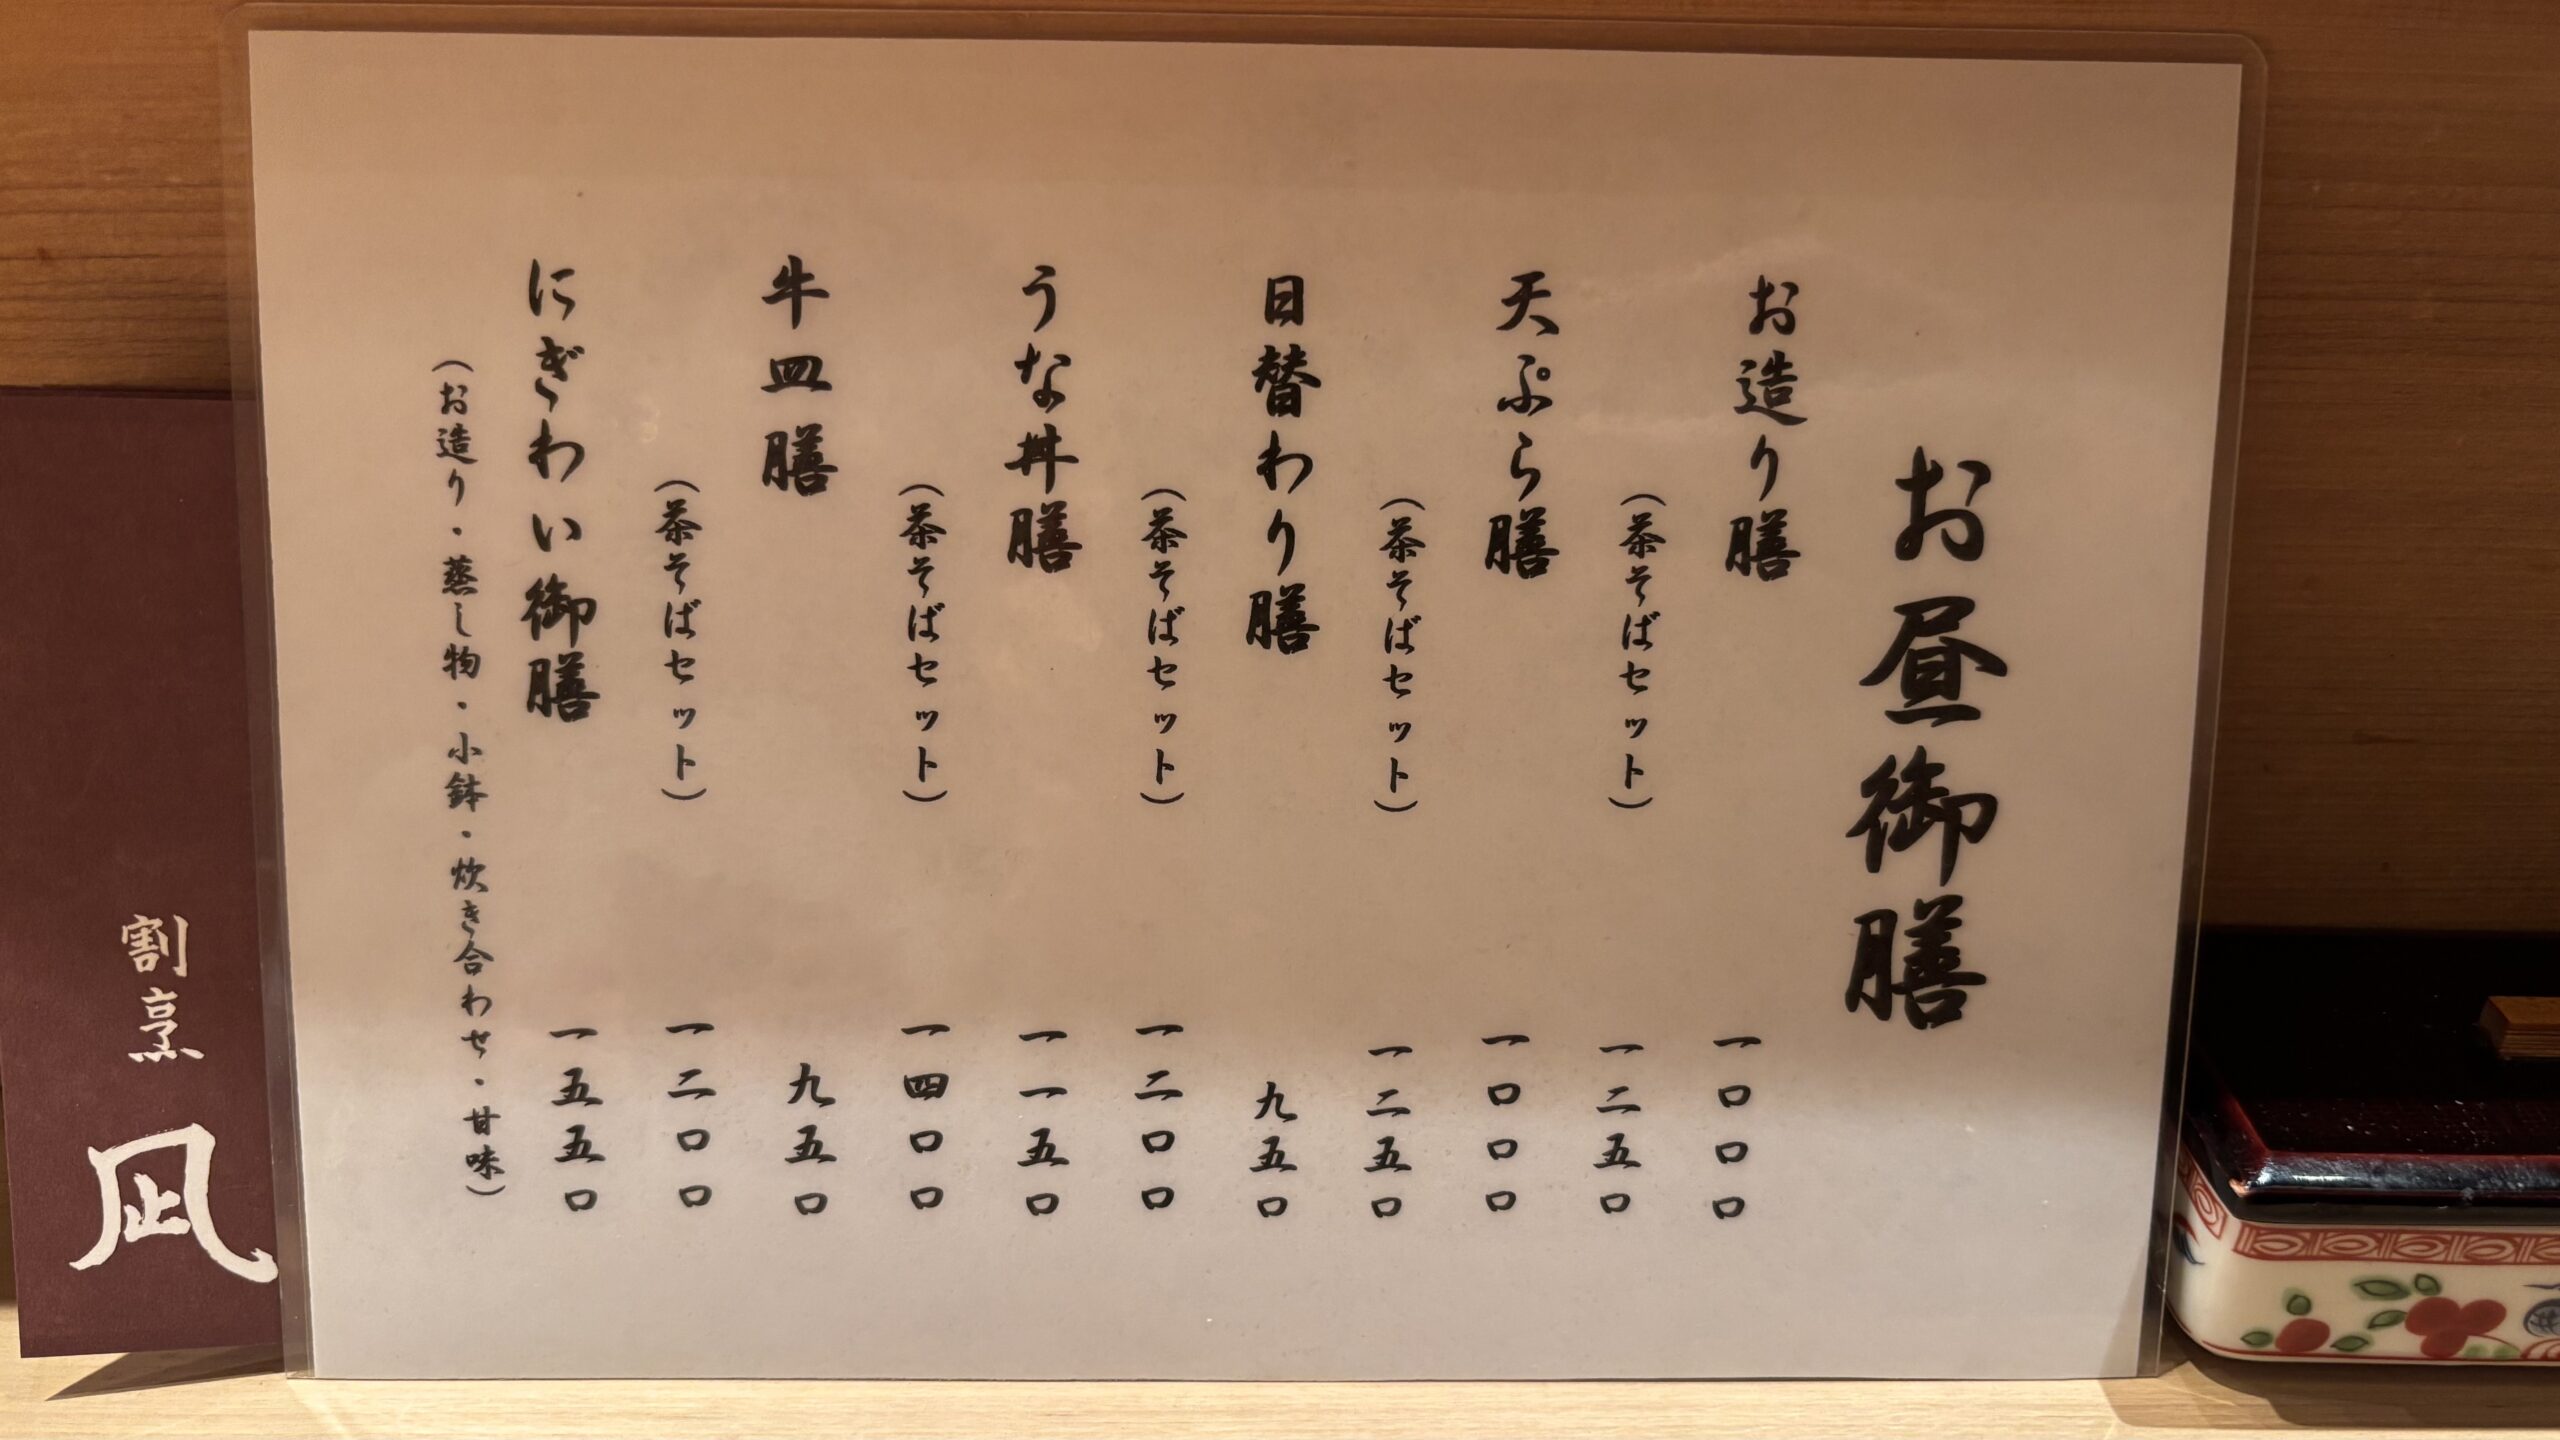 お昼御膳
お造り膳 一〇〇〇
(茶そばセット) 一二五〇
天ぷら膳 一〇〇〇
(茶そばセット) 一二五〇
日替わり膳 九五〇
(茶そばセット) 一二〇〇
うな丼膳 一一五〇
(茶そばセット) 一四〇〇
牛皿膳 九五〇
(茶そばセット) 一二〇〇
にぎわい御膳 一五五〇
(お造り・蒸し物・小鉢・炊き合わせ・甘味)
割烹 凪